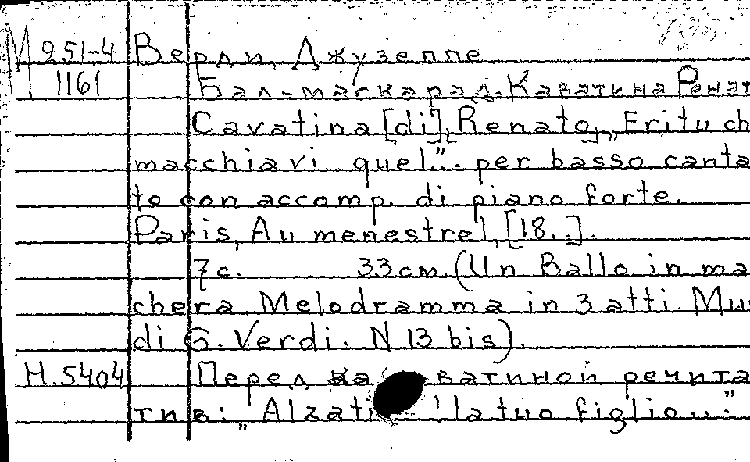 М 251-4 Верди, Джузеппе
1161 Бал-маскарад. Каватина Ренат
Cavatina [di] „Renato„ „Eri tu ch
macchiavi quel..." per basso canta
to con accomp. di piano forte.
Paris, Au menestrel, [18..].
7 с. 33 см. (Un Ballo in ma
chera Melodramma in 3 atti. Mu
di G. Verdi. N 13 bis).
Н. 5404 Перед каватиной речита
тив: „Alzati la tuo figlio..."